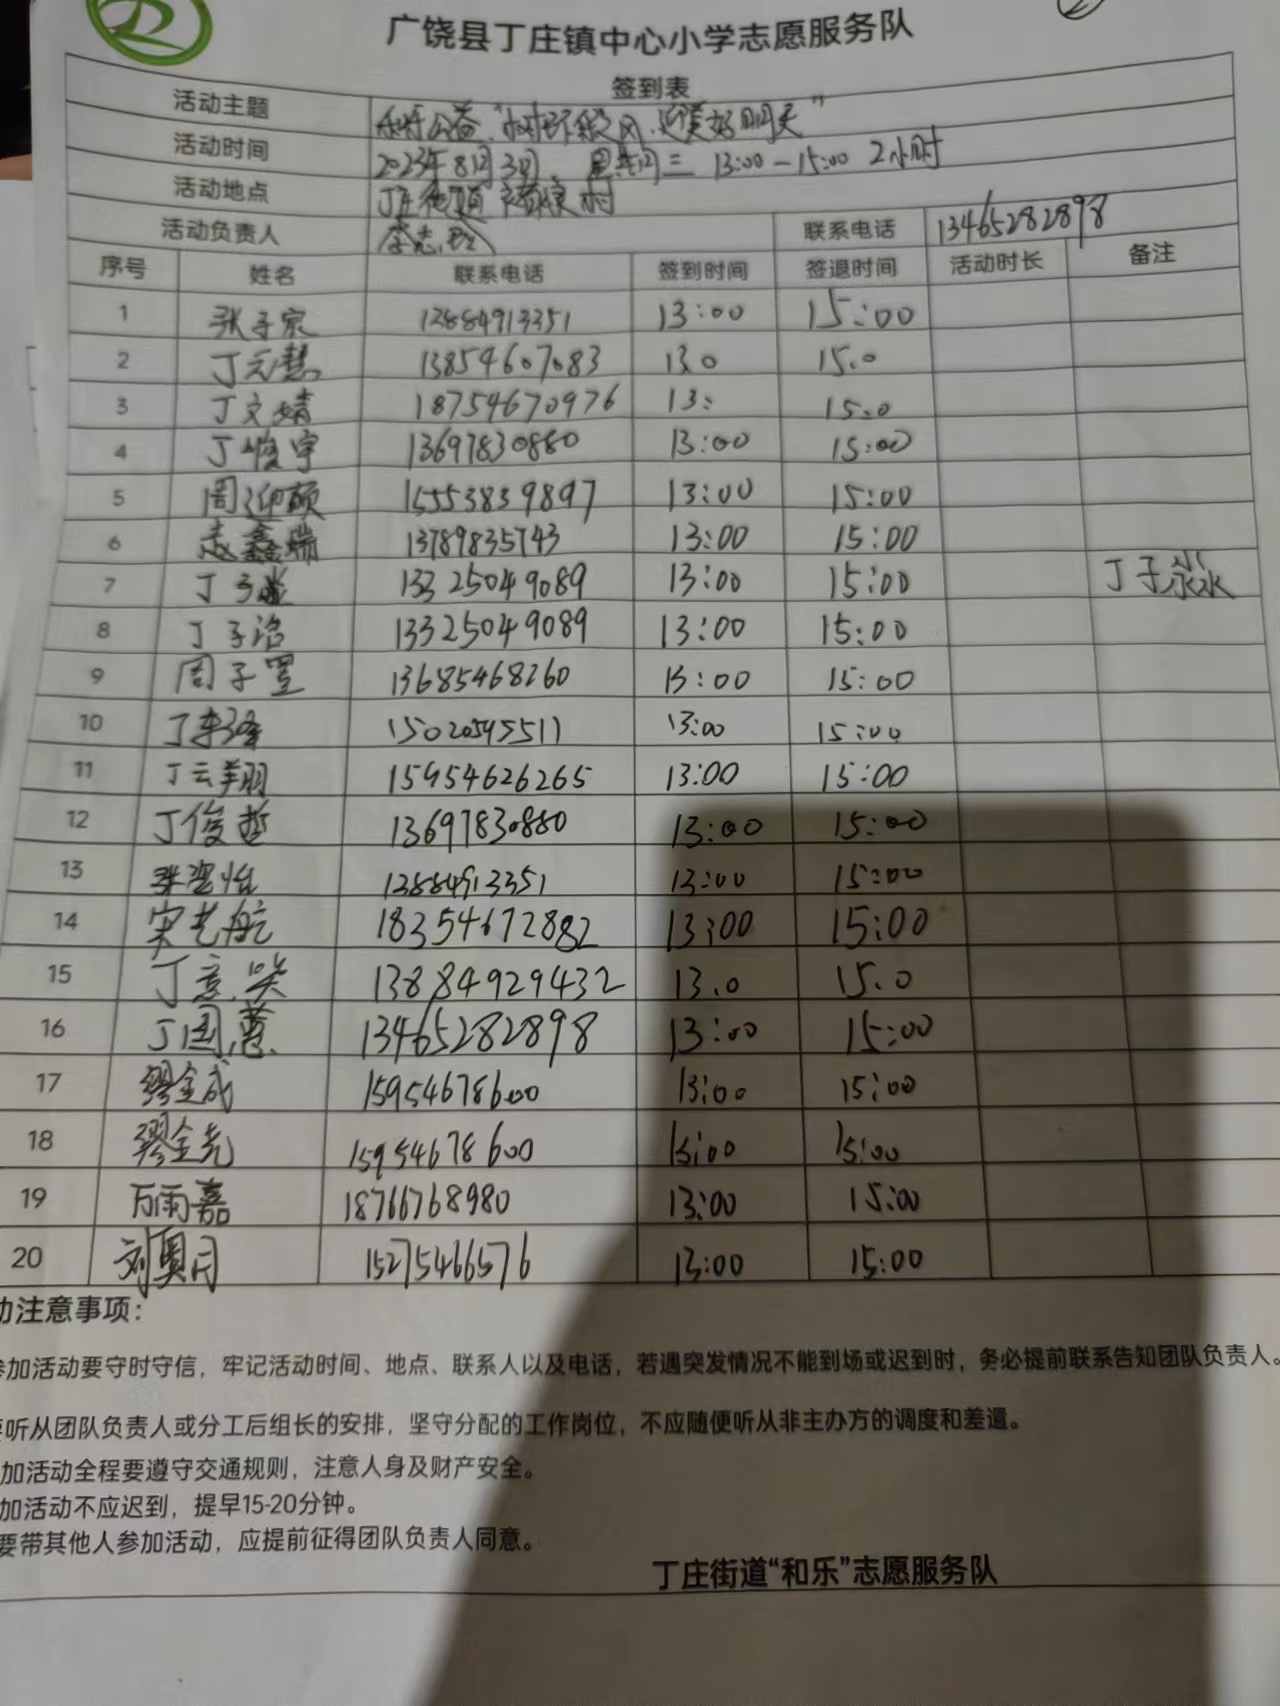 广饶县丁庄镇中心小学志愿服务队
签到表
活动主题 公益"树环保新风,迎美好明天"
活动时间 2023年8月3日 13:00-15:00 2小时
活动地点 丁庄 村
活动负责人 李志 联系电话 13465282898
序号 姓名 联系电话 签到时间 签退时间 活动时长 备注
1 张子宸 13884913351 13:00 15:00
2 丁元慧 13854607083 13.0 15.0
3 丁文婧 18754670976 13: 15.0
4 丁俊宇 13697830880 13:00 15:00
5 周迎硕 15553839897 13:00 15:00
6 鑫瑞 13789835743 13:00 15:00
7 丁子 13325049089 13:00 15:00 丁子淼
8 丁子涵 13325049089 13:00 15:00
9 周子置 13685468260 13:00 15:00
10 丁 15020595511 13:00 15:00
11 丁云翔 15954626265 13:00 15:00
12 丁俊哲 13697830880 13:00 15:00
13 张 怡 13884913351 13:00 15:00
14 宋艺航 18354672882 13:00 15:00
15 丁意笑 13884929432 13.0 15.0
16 丁国蕙 13465282898 13:00 15:00
17 缪金成 15954678600 13:00 15:00
18 缪金尧 15954678600 13:00 15:00
19 万雨嘉 18766768980 13:00 15:00
20 刘奥月 15275466576 13:00 15:00
动注意事项:
参加活动要守时守信,牢记活动时间、地点、联系人以及电话,若遇突发情况不能到场或迟到时,务必提前联系告知团队负责人。
要听从团队负责人或分工后组长的安排,坚守分配的工作岗位,不应随便听从非主办方的调度和差遣。
加活动全程要遵守交通规则,注意人身及财产安全。
加活动不应迟到,提早15-20分钟。
要带其他人参加活动,应提前征得团队负责人同意。
丁庄街道“和乐”志愿服务队